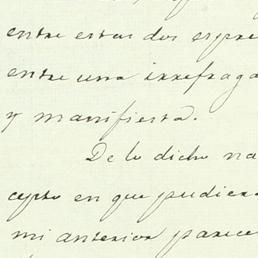 entre estas dos expre
entre una irrefraga
y manifiesta.
De lo dicho na
cepto en que pudiera
mi anterior parece